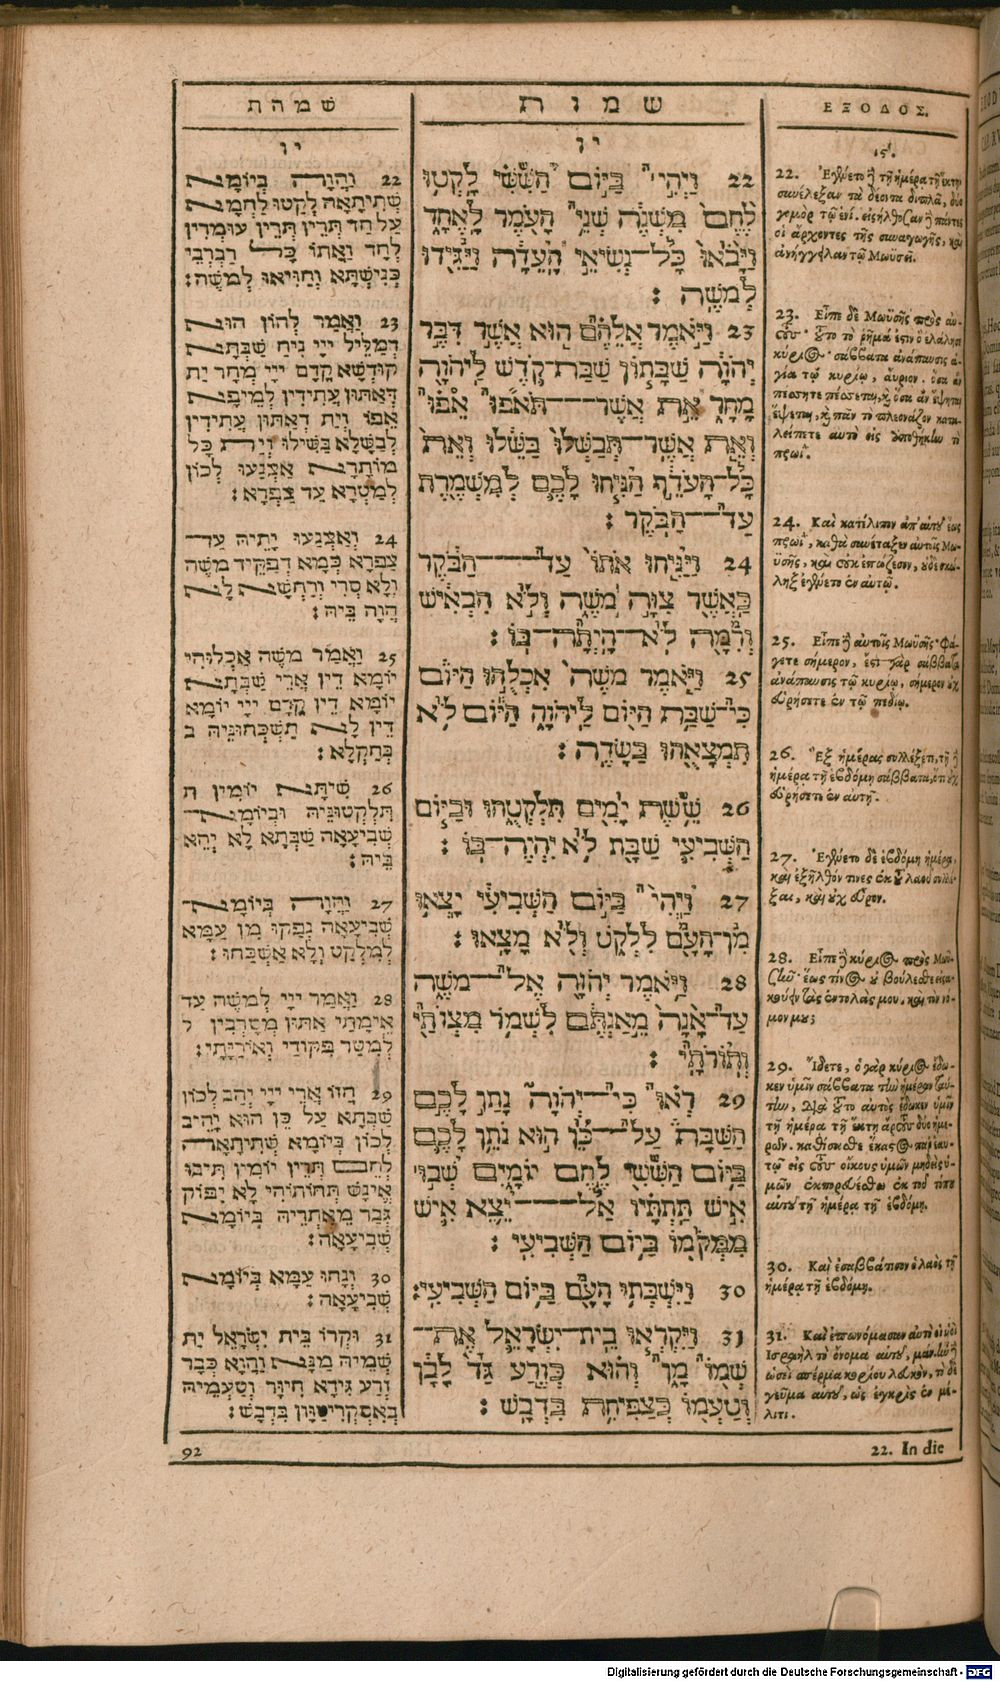 שמהת
יו
22 וַהֲוָה בְּיוֹמָא
שְׁתִיתָאָה לְקַטוּ לַחְמָא
עַל חַד תְּרֵין תְּרֵין עוּמְרִין
לְחַד וַאֲתוֹ כָּל רַבְרְבֵי
כְּנִישְׁתָּא וְחַוִּיאוּ לְמשֶׁה:
23 וַאֲמַר לְהוֹן הוּא
דְמַלֵּיל יְיָי נְיָח שַׁבְּתָא
קוּדְשָׁא קֳדָם יְיָי מְחָר יָת
דְאַתּוּן עֲתִידִין לְמֵיפָא
אֵפוֹ וְיָת דְאַתּוּן עֲתִידִין
לְבַשָּׁלָא בַּשִּׁילוּ וְיָת כָּל
מוֹתָרָא אַצְנַעוּ לְכוֹן
לְמַטְּרָא עַד צַפְרָא:
24 וְאַצְנַעוּ יָתֵיהּ עַד
צַפְרָא כְּמָא דְפַקֵּיד משֶׁה
וְלָא סְרִי וְרִחְשָׁא לָא
הֲוָה בֵּיהּ:
25 וַאֲמַר משֶׁה אִכְלוּהִי
יוֹמָא דֵין אֲרֵי שַׁבְּתָא
יוֹמָא דֵין קֳדָם יְיָי יוֹמָא
דֵין לָא תַשְׁכְּחוּנֵּיהּ ב
בְּחַקְלָא:
26 שִׁיתָּא יוֹמִין ת
תִּלְקְטוּנֵּיהּ וּבְיוֹמָא
שְׁבִיעָאָה שַׁבְּתָא לָא יְהֵא
בֵּיהּ:
27 וַהֲוָה בְּיוֹמָא
שְׁבִיעָאָה נְפַקוּ מִן עַמָּא
לְמִלְקַט וְלָא אַשְׁכַּחוּ:
28 וַאֲמַר יְיָי לְמשֶׁה עַד
אֵימָתַי אַתּוּן מְסָרְבִין ל
לְמִטַּר פִּקּוּדַי וְאוֹרָיָתִי:
29 חֲזוֹ אֲרֵי יְיָי יְהַב לְכוֹן
שַׁבְּתָא עַל כֵּן הוּא יָהֵיב
לְכוֹן בְּיוֹמָא שְׁתִיתָאָה
לְחֵם תְּרֵין יוֹמִין תִּיבוּ
אֱינָשׁ תְּחוֹתוֹהִי לָא יִפּוֹק
גְּבַר מֵאַתְרֵיהּ בְּיוֹמָא
שְׁבִיעָאָה:
30 וְנָחוּ עַמָּא בְּיוֹמָא
שְׁבִיעָאָה:
31 וּקְרוֹ בֵּית יִשְׂרָאֵל יָת
שְׁמֵיהּ מַנָּא וְהוּא כְּבַר
זְרַע גִּידָא חִיוָּר וְטַעְמֵיהּ
כְּאִסְקְרִיטָוָן בִּדְבָשׁ:
שמות
יו
22 וַיְהִי בַּיּוֹם הַשִּׁשִּׁי לָקְטוּ
לֶחֶם מִשְׁנֶה שְׁנֵי הָעֹמֶר לָאֶחָד
וַיָּבֹאוּ כָּל־נְשִׂיאֵי הָעֵדָה וַיַּגִּידוּ
לְמשֶׁה:
23 וַיֹּאמֶר אֲלֵהֶם הוּא אֲשֶׁר דִּבֶּר
יְהֹוָה שַׁבָּתוֹן שַׁבַּת־קֹדֶשׁ לַיהֹוָה
מָחָר אֵת אֲשֶׁר־תֹּאפוּ אֵפוּ
וְאֵת אֲשֶׁר־תְּבַשְּׁלוּ בַּשֵּׁלוּ וְאֵת
כָּל־הָעֹדֵף הַנִּיחוּ לָכֶם לְמִשְׁמֶרֶת
עַד־הַבֹּקֶר:
24 וַיַּנִּיחוּ אֹתוֹ עַד־הַבֹּקֶר
כַּאֲשֶׁר צִוָּה משֶׁה וְלֹא הִבְאִישׁ
וְרִמָּה לֹא־הָיְתָה־בּוֹ:
25 וַיֹּאמֶר משֶׁה אִכְלֻהוּ הַיּוֹם
כִּי־שַׁבָּת הַיּוֹם לַיהֹוָה הַיּוֹם לֹא
תִמְצָאֻהוּ בַּשָּׂדֶה:
26 שֵׁשֶׁת יָמִים תִּלְקְטֻהוּ וּבַיּוֹם
הַשְּׁבִיעִי שַׁבָּת לֹא יִהְיֶה־בּוֹ:
27 וַיְהִי בַּיּוֹם הַשְּׁבִיעִי יָצְאוּ
מִן־הָעָם לִלְקֹט וְלֹא מָצָאוּ:
28 וַיֹּאמֶר יְהֹוָה אֶל־משֶׁה
עַד־אָנָה מֵאַנְתֶּם לִשְׁמוֹר מִצְוֹתַי
וְתוֹרֹתָי:
29 רְאוּ כִּי־יְהֹוָה נָתַן לָכֶם
הַשַּׁבָּת עַל־כֵּן הוּא נֹתֵן לָכֶם
בַּיּוֹם הַשִּׁשִּׁי לֶחֶם יוֹמָיִם שְׁבוּ
אִישׁ תַּחְתָּיו אַל־יֵצֵא אִישׁ
מִמְּקֹמוֹ בַּיּוֹם הַשְּׁבִיעִי:
30 וַיִּשְׁבְּתוּ הָעָם בַּיּוֹם הַשְּׁבִיעִי:
31 וַיִּקְרְאוּ בֵית־יִשְׂרָאֵל אֶת־
שְׁמוֹ מָן וְהוּא כְּזֶרַע גַּד לָבָן
וְטַעְמוֹ כְּצַפִּיחִת בִּדְבָשׁ:
ΕΞΟΔΟΣ.
ις.
22. Ἐγένετο δὲ τῇ ἡμέρᾳ τῇ ἕκτῃ
συνέλεξαν τὰ δέοντα διπλᾶ, δύο
γομὸρ τῷ ἑνί. εἰσήλθοσαν δὲ πάντες
οἱ ἄρχοντες τῆς συναγωγῆς, καὶ
ἀνήγγειλαν τῷ Μωυσεῖ.
23. Εἶπε δὲ Μωϋσῆς πρὸς αὐ-
τούς· τοῦτο τὸ ῥῆμά ἐστιν ὃ ἐλάλησε
κύριος· σάββατα ἀνάπαυσις ἁ-
γία τῷ κυρίῳ, αὔριον. ὅσα ἂν
πέσσητε πέσσετε, καὶ ὅσα ἂν ἕψητε
ἕψετε, καὶ πᾶν τὸ πλεονάζον κατα-
λείπετε αὐτὸ εἰς ὑποθήκην τὸ
πρωΐ.
24. Καὶ κατέλιπον ἀπ' αὐτοῦ ἕως
πρωῒ, καθὰ συνέταξεν αὐτοῖς Μω-
ϋσῆς, καὶ οὐκ ἐπώζεσεν, οὐδὲ σκώ-
ληξ ἐγένετο ἐν αὐτῷ.
25. Εἶπε δὲ αὐτοῖς Μωϋσῆς· Φά-
γετε σήμερον, ἔστι γὰρ σάββατα
ἀνάπαυσις τῷ κυρίῳ, σήμερον οὐχ
εὑρήσετε ἐν τῷ πεδίῳ.
26. Ἓξ ἡμέρας συλλέξετε, τῇ δὲ
ἡμέρᾳ τῇ ἑβδόμῃ σάββατα, ὅτι οὐχ
εὑρήσετε ἐν αὐτῇ.
27. Ἐγένετο δὲ ἑβδόμῃ ἡμέρᾳ,
καὶ ἐξῆλθόν τινες ἐκ τοῦ λαοῦ συλλέ-
ξαι, καὶ οὐχ εὗρον.
28. Εἶπε δὲ κύριος πρὸς Μωϋ-
σῆν· ἕως τίνος οὐ βούλεσθε εἰσα-
κούειν τὰς ἐντολάς μου, καὶ τὸν νό-
μον μου;
29. Ἴδετε, ὁ γὰρ κύριος ἔδω-
κεν ὑμῖν σάββατα τὴν ἡμέραν ταύ-
την, διὰ τοῦτο αὐτὸς ἔδωκεν ὑμῖν
τῇ ἡμέρᾳ τῇ ἕκτῃ ἄρτους δύο ἡμε-
ρῶν. καθίσεσθε ἕκαστος παρ' ἑαυ-
τῷ εἰς τοὺς οἴκους ὑμῶν μηδεὶς ὑ-
μῶν ἐκπορευέσθω ἐκ τοῦ τόπου
αὐτοῦ τῇ ἡμέρᾳ τῇ ἑβδόμῃ.
30. Καὶ ἐσαββάτισεν ὁ λαὸς τῇ
ἡμέρᾳ τῇ ἑβδόμῃ.
31. Καὶ ἐπωνόμασαν αὐτὸ οἱ υἱοὶ
Ἰσραὴλ τὸ ὄνομα αὐτοῦ, μάν. ἦν δὲ
ὡσεὶ σπέρμα κορίου λευκὸν, τὸ δὲ
γεῦμα αὐτοῦ, ὡς ἐγκρὶς ἐν μέ-
λιτι.
92
22. In die
Digitalisierung gefördert durch die Deutsche Forschungsgemeinschaft - DFG